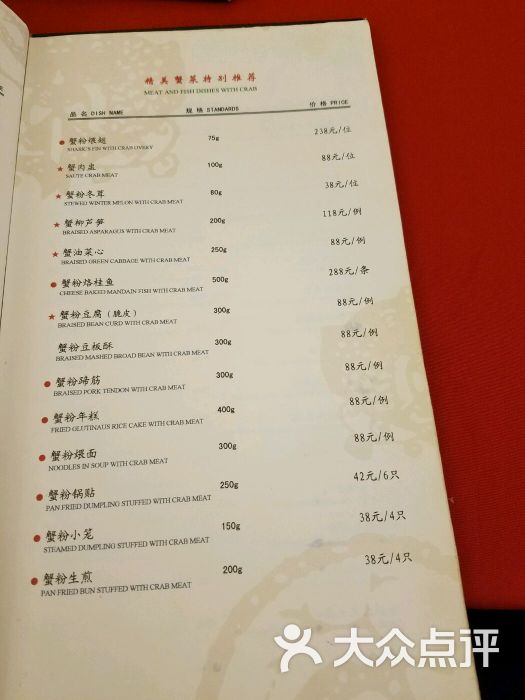 精美蟹菜特别推荐
MEAT AND FISH DISHES WITH CRAB
品名 DISH NAME 规格 STANDARDS 价格 PRICE
蟹粉燉翅 75g 238元/位
SHARK'S FIN WITH CRAB OVERY
蟹肉盅 100g 88元/位
SAUTE CRAB MEAT
蟹粉冬茸 80g 38元/位
STEWED WINTER MELON WITH CRAB MEAT
蟹柳芦笋 200g 118元/例
BRAISED ASPARAGUS WITH CRAB MEAT
蟹油菜心 250g 88元/例
BRAISED GREEN CABBAGE WITH CRAB MEAT
蟹粉烙桂鱼 500g 288元/条
CHEESE BAKED MANDAIN FISH WITH CRAB MEAT
蟹粉豆腐（脆皮） 300g 88元/例
BRAISED BEAN CURD WITH CRAB MEAT
蟹粉豆板酥 300g 88元/例
BRAISED MASHED BROAD BEAN WITH CRAB MEAT
蟹粉蹄筋 300g 88元/例
BRAISED PORK TENDON WITH CRAB MEAT
蟹粉年糕 400g 88元/例
FRIED GLUTINAUS RICE CAKE WITH CRAB MEAT
蟹粉煨面 300g 88元/例
NOODLES IN SOUP WITH CRAB MEAT
蟹粉锅贴 250g 42元/6只
PAN FRIED DUMPLING STUFFED WITH CRAB MEAT
蟹粉小笼 150g 38元/4只
STEAMED DUMPLING STUFFED WITH CRAB MEAT
蟹粉生煎 200g 38元/4只
PAN FRIED BUN STUFFED WITH CRAB MEAT
大众点评